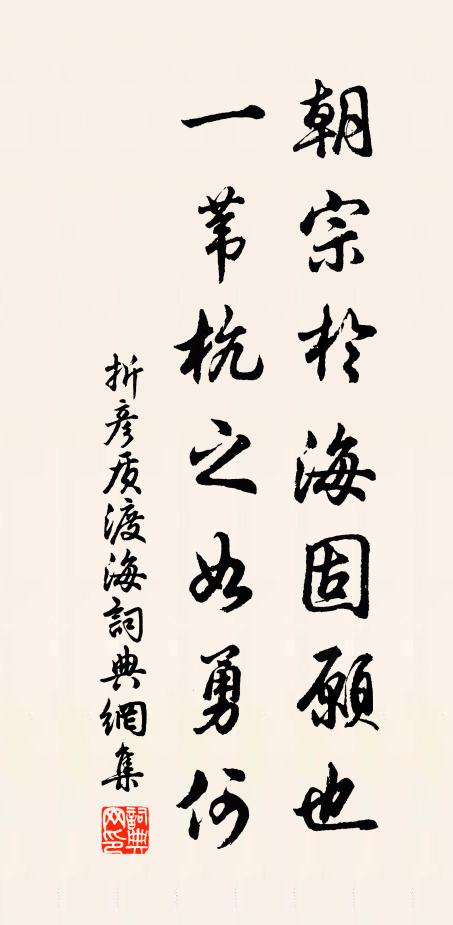 朝宗於海固願也
一苇杭之如勇何
折彦质渡海詞典網集
詞典網印